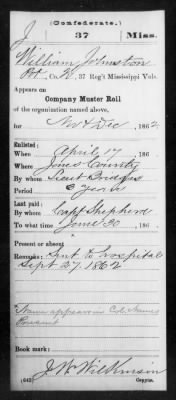 (Confederate.)
J 37 Miss.
William Johnston
Pvt, Co. 37 Reg't Mississippi Vols.
Appears on
Company Muster Roll
of the organization named above,
for Nov & Dec, 1862
Enlisted:
When April 17, 186
Where Jones County
By whom Lieut Bridges
Period 3 Years
Last paid:
By whom Capt Shepherd
To what time June 30, 186
Present or absent
Remarks: Sent to hospital
Sept 27, 1862
Name appears in Col. Names
Present
Book mark:
J. W. Wilkinson
(642) Copyist.